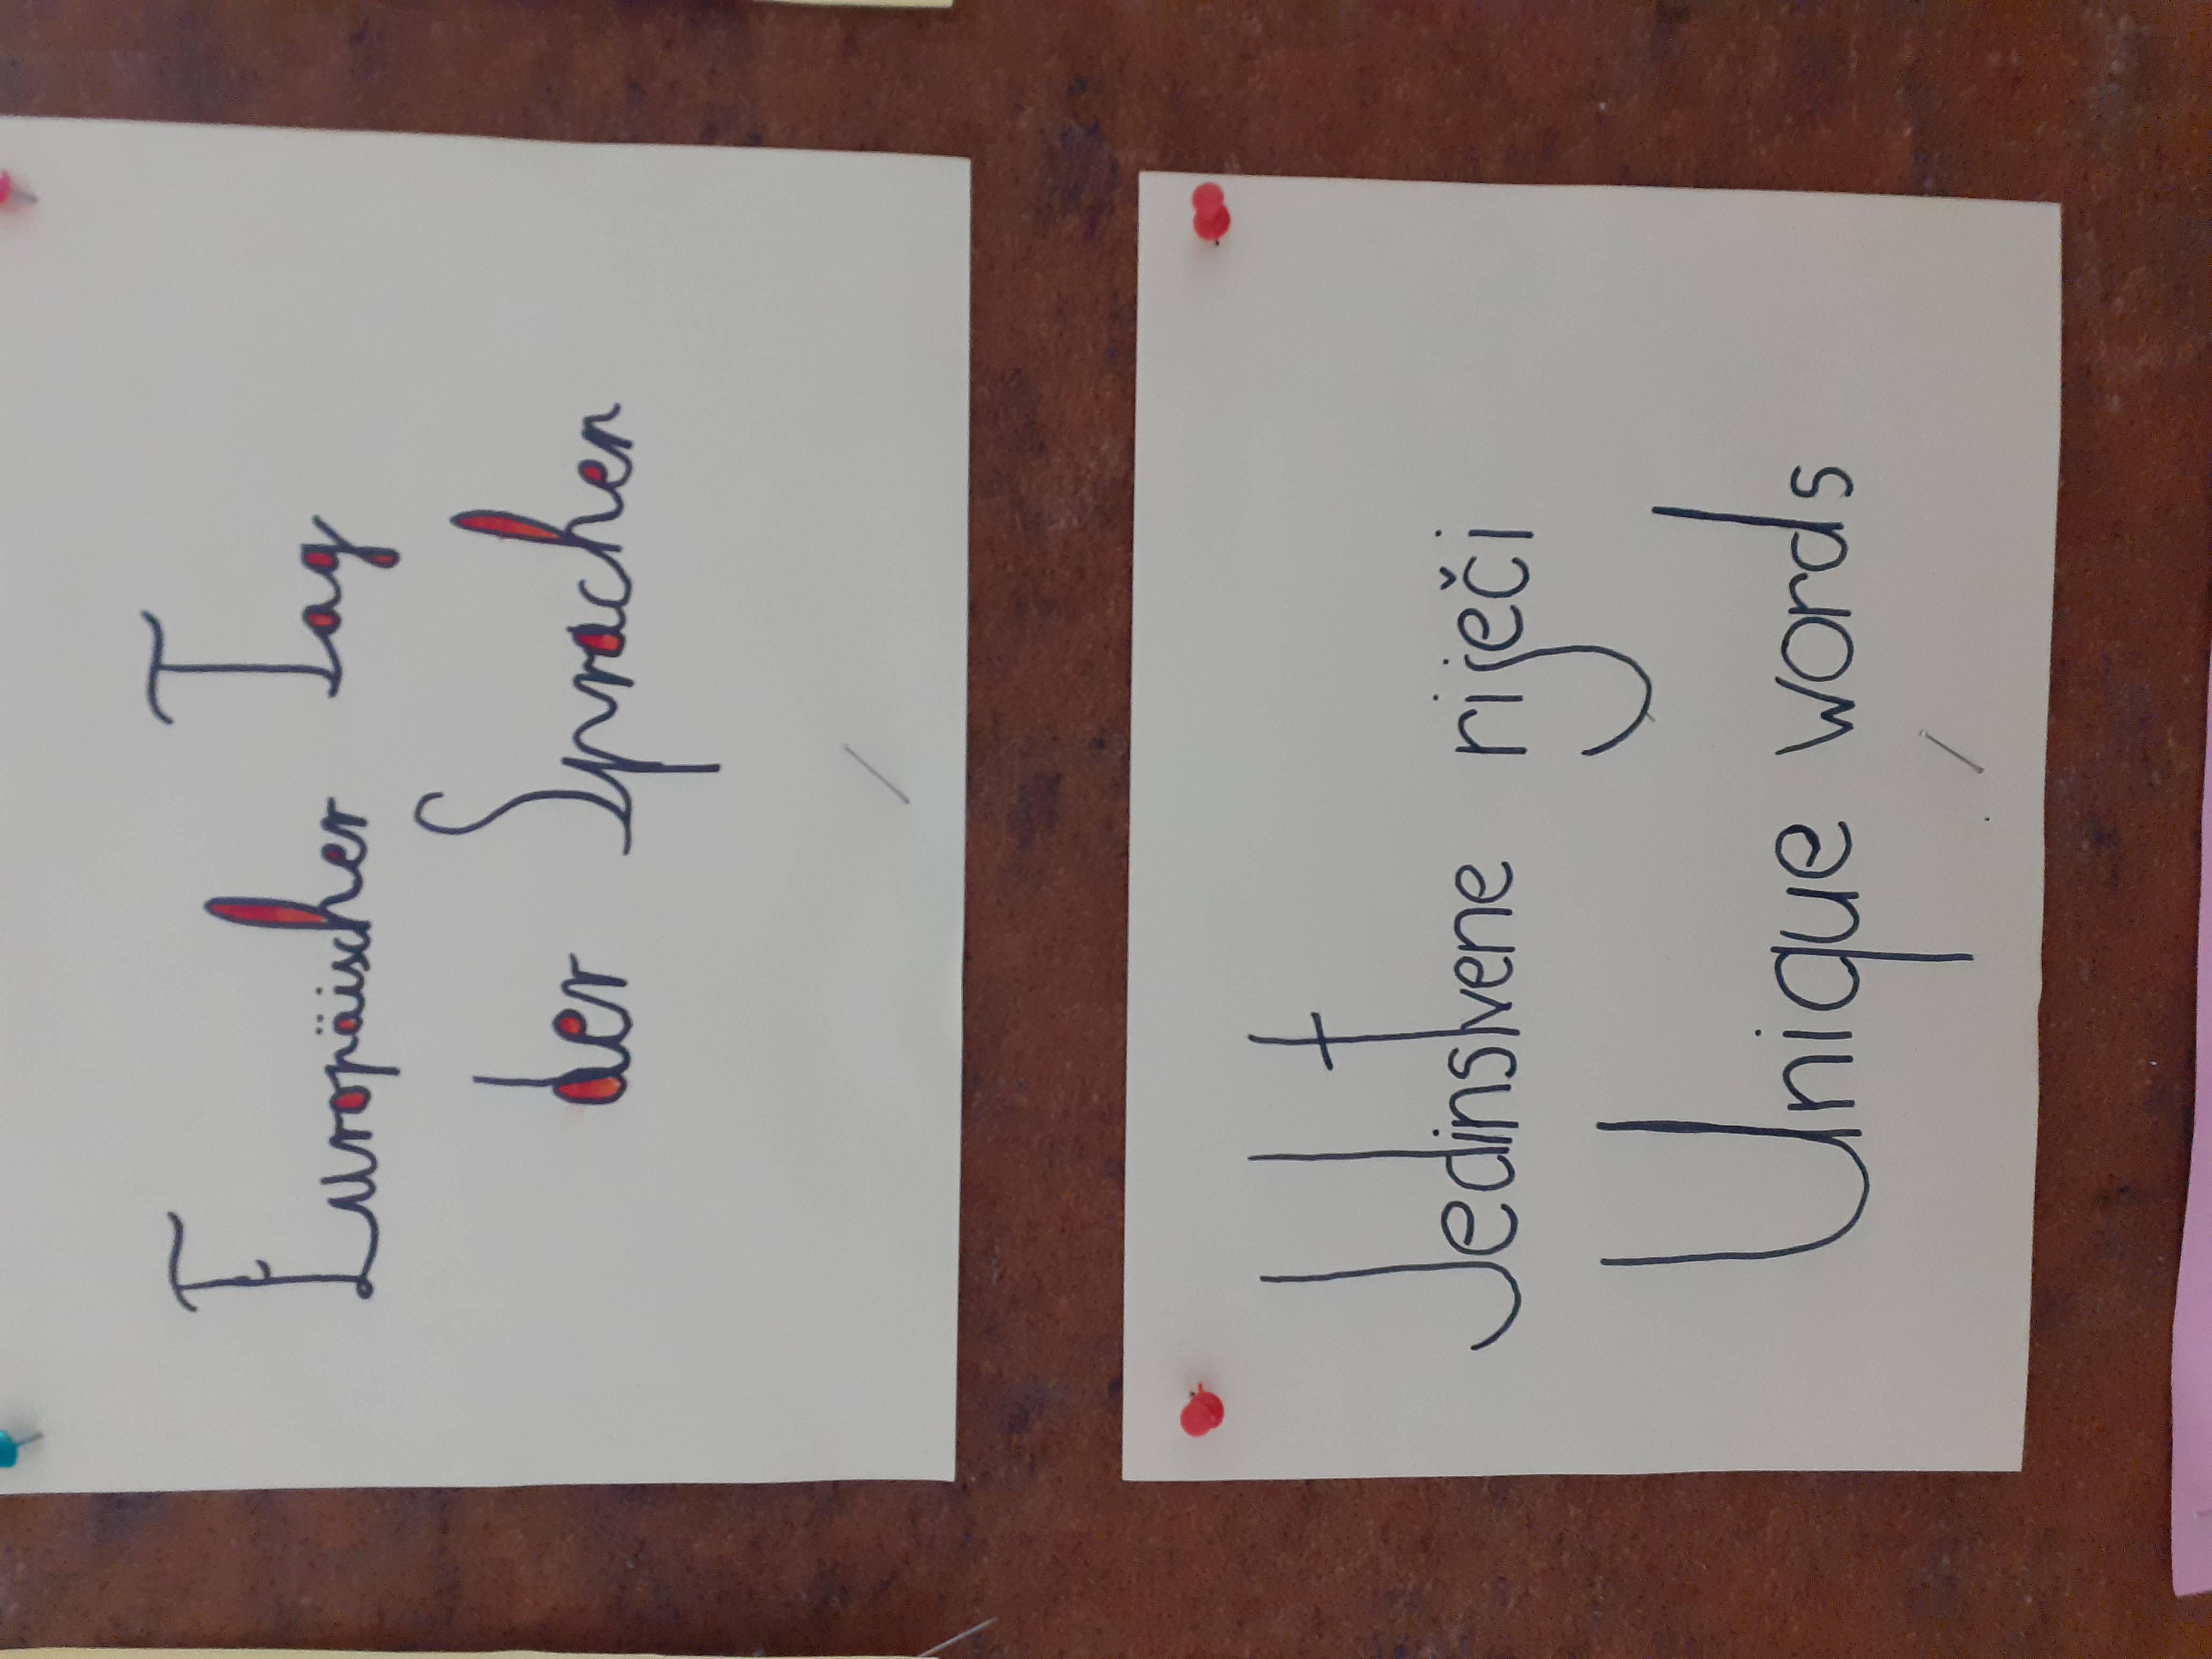 Europäischer Tag
der Sprachen
Jedinstvene riječi
Unique words